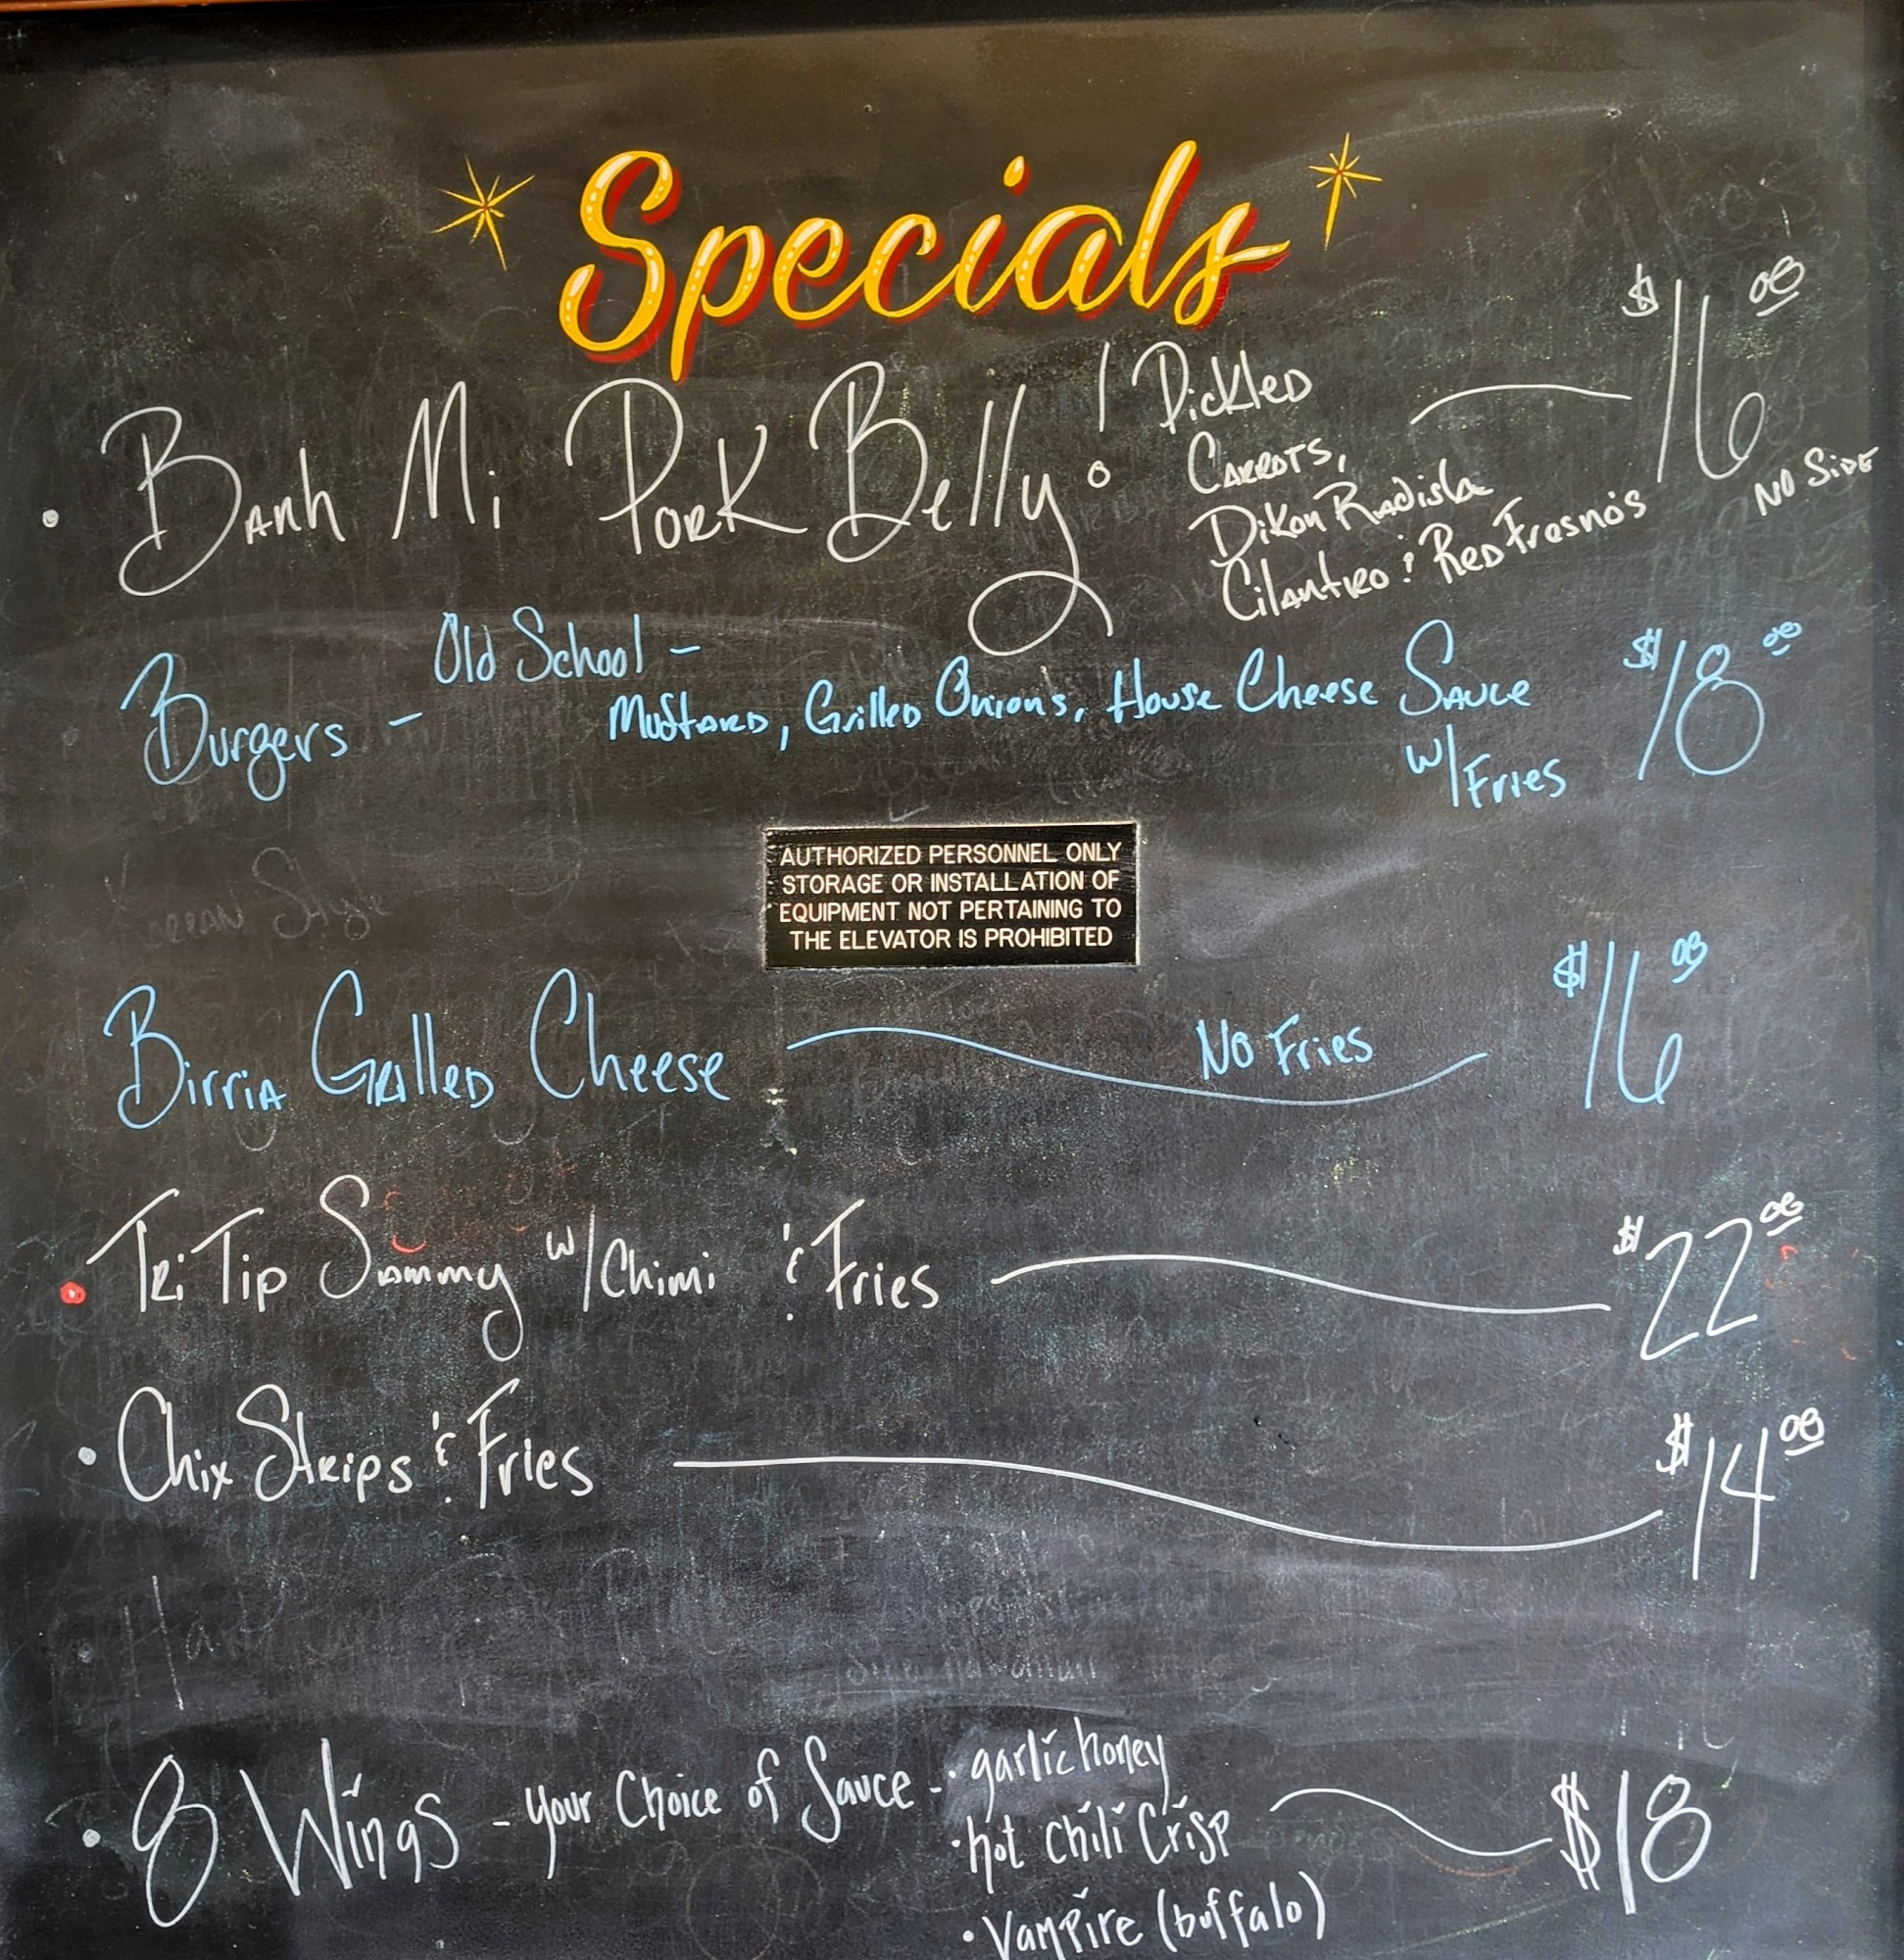 Specials
• Banh Mi Pork Belly! Pickled $16 00
Carrots,
Dikon Radish
Cilantro & Red Fresno's
No Side
Old School -
Burgers - Mustard, Grilled Onions, House Cheese Sauce $18 00
w/Fries
AUTHORIZED PERSONNEL ONLY
STORAGE OR INSTALLATION OF
EQUIPMENT NOT PERTAINING TO
THE ELEVATOR IS PROHIBITED
Birria Grilled Cheese No Fries $16 00
• Tri Tip Sammy w/Chimi & Fries $22 00
• Chix Strips & Fries $14 00
• 8 Wings - your Choice of Sauce - • garlic honey $18
• hot chili Crisp
• Vampire (buffalo)